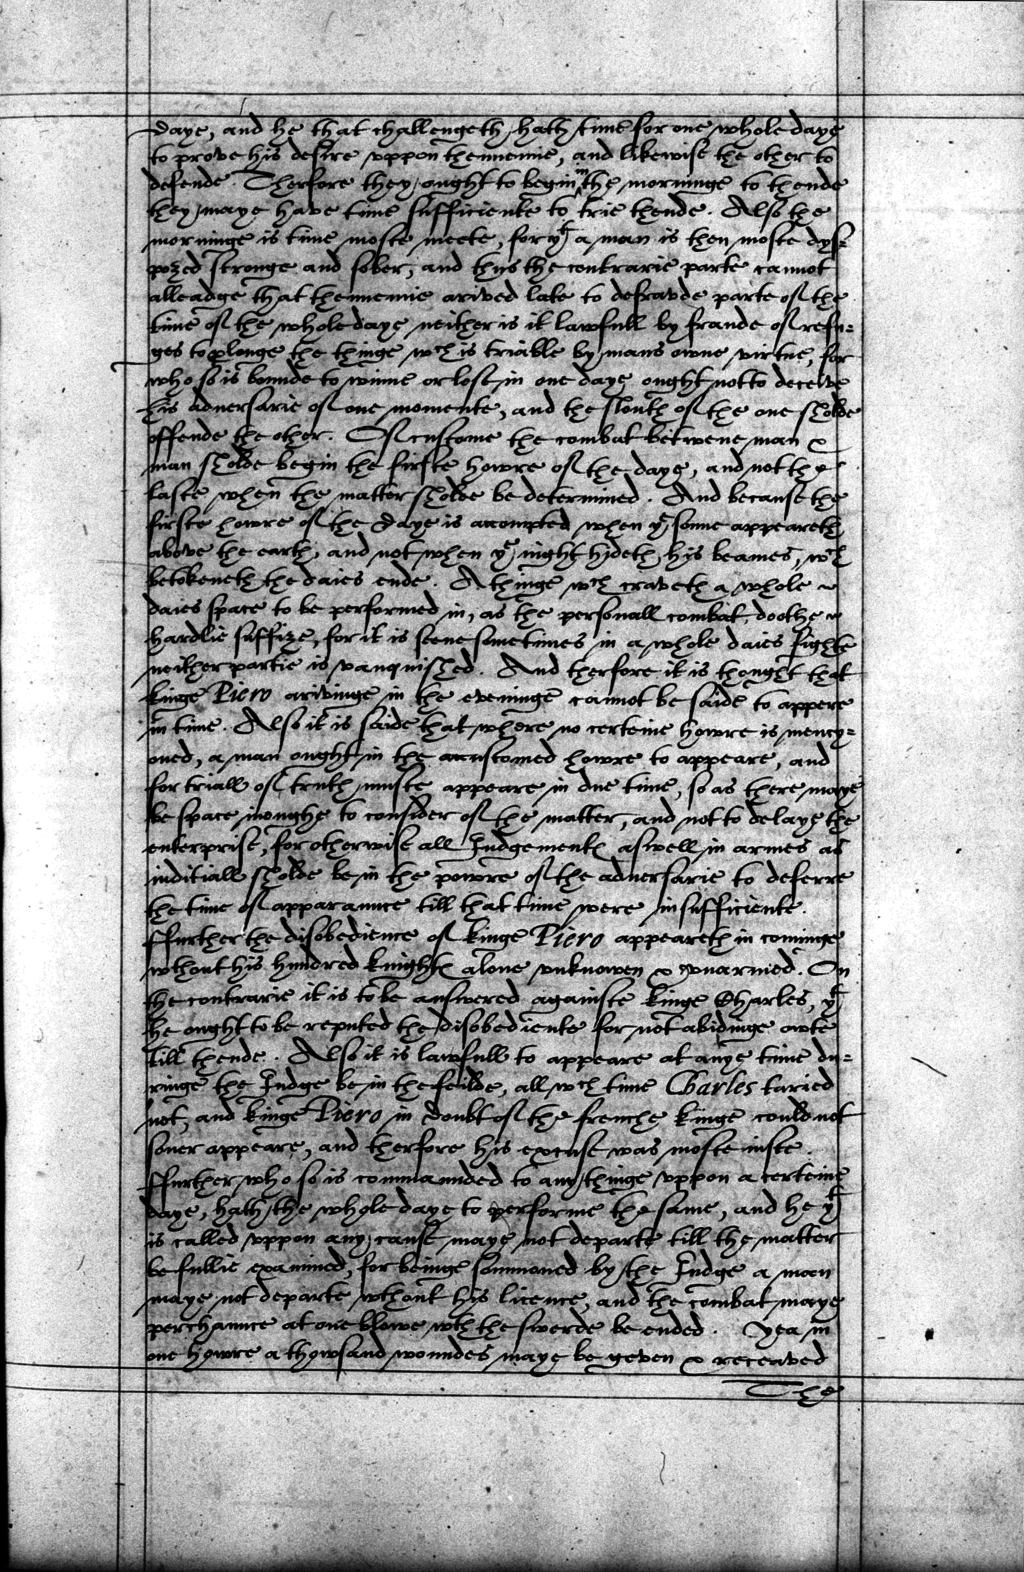 daye, and he that challengeth, hath time for one whole daye
to prove his desire uppon thennemie, and likewise the other to
defende. Therfore they ought to begin in the morninge to thende
they maye have time sufficiente to trie thende. Also the
morninge is time moste meete, for yt a man is then moste dys-
pozed stronge and sober, and thus the contrarie parte cannot
alleadge that thennemie arived late to defravde parte of the
time of the whole daye neither is it lawfull by fraude of refu-
ges to prolonge the thinge wch is triable by mans owne virtue, for
who so is bounde to winne or lose in one daye ought not to deceive
his adversarie of one momente, and the slouth of the one sholde
offende the other. Of custome the combat betwene man &
man sholde begin the firste howre of the daye, and not the
laste when the matter sholde be determined. And because the
firste howre of the daye is accompted when ye sonne appeareth
above the earth, and not when ye night hideth his beames, wch
betokeneth the daies ende. A thinge wch craveth a whole
daies space to be performed in, as the personall combat doothe
hardlie suffize, for it is seene sometimes in a whole daies fighte
neither partie is vanquished. And therfore it is thought that
kinge Piero arivinge in the eveninge cannot be saide to appere
in time. Also it is saide that where no certeine howre is mency-
oned, a man ought in the accustomed howre to appeare, and
for triall of truth muste appeare in due time, so as there maye
be space inoughe to consider of the matter, and not to delaye the
enterprise, for otherwise all Iudgementes aswell in armes as
iudiciall sholde be in the powre of the adversarie to deferre
the time of apparaunce till that time were insufficiente.
ffurther the disobedience of kinge Piero appeareth in cominge
wthout his hundred knightes alone unknowen & unarmed. On
the contrarie it is to be answered againste kinge Charles, yt
he ought to be reputed the disobediente for not abidinge owte
till thende. Also it is lawfull to appeare at anye time du-
ringe the Iudge be in the feilde, all wch time Charles taried
not, and kinge Piero in doubt of the frenche kinge could not
soner appeare, and therfore his excuse was moste iuste.
ffurther who so is commaunded to any thinge uppon a certeine
daye, hath the whole daye to performe the same, and he yt
is called uppon any cause maye not departe till the matter
be fullie examined, for beinge sommoned by the Iudge a man
maye not departe wthout his licence, and the combat maye
perchaunce at one blowe wth the swerde be ended. Yea in
one howre a thowsand woundes maye be geven & receaved
The